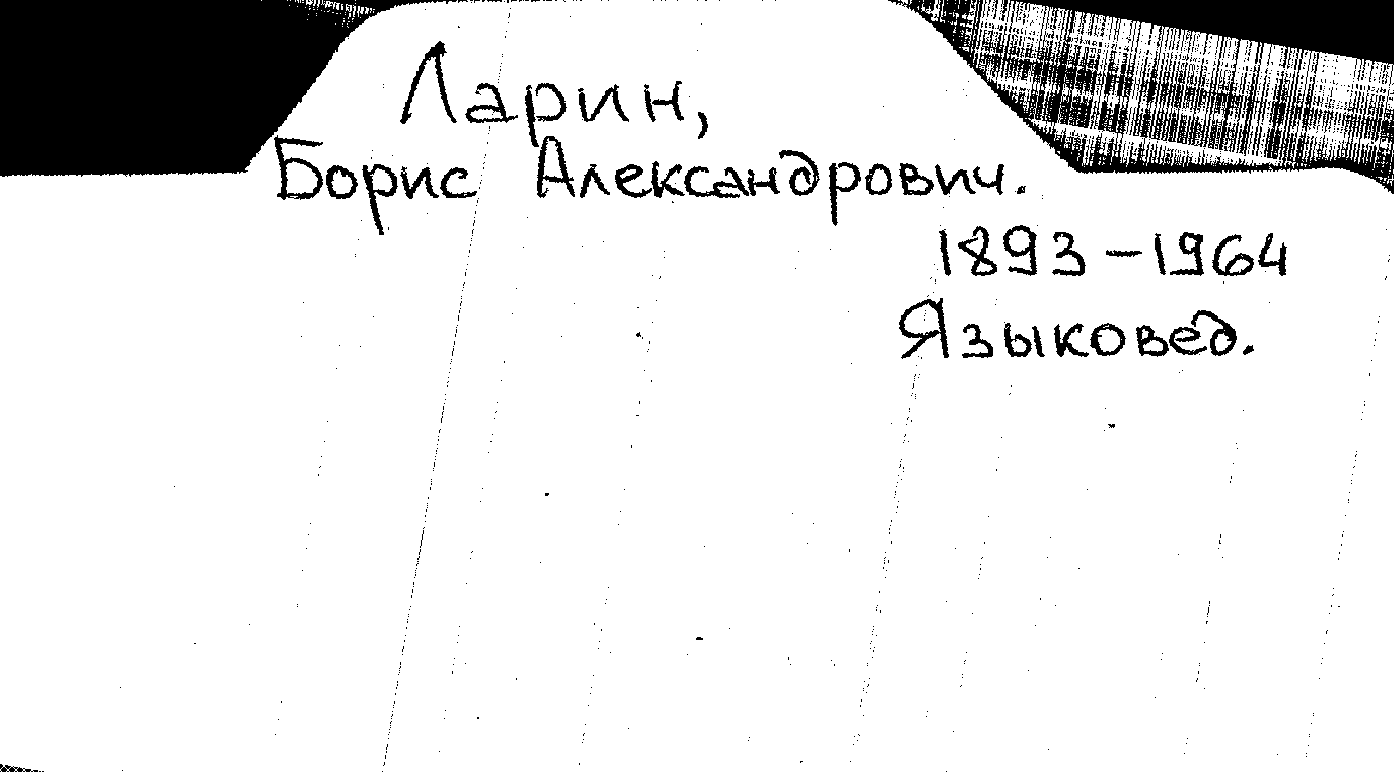 Ларин,
Борис Александрович.
1893–1964
Языковед.